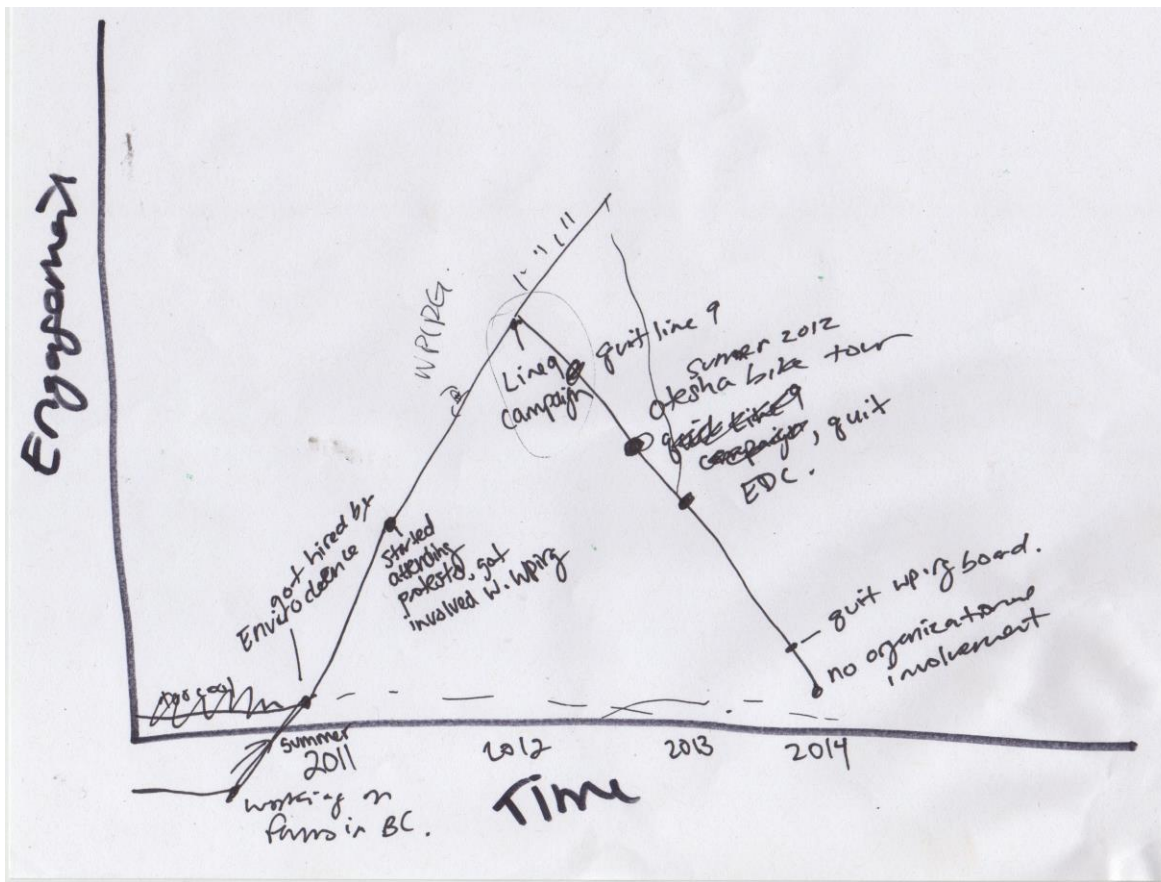 Engagement
WPIRG
Line 9
campaign
quit line 9
summer 2012
otesha bike tour
quit line 9
campaign, quit
EDC.
got hired by
Envirodance
started
attending
protests, got
involved w. wpirg
quit wpirg board.
no organizational
involvement
summer
2011
2012
2013
2014
working on
farms in BC.
Time